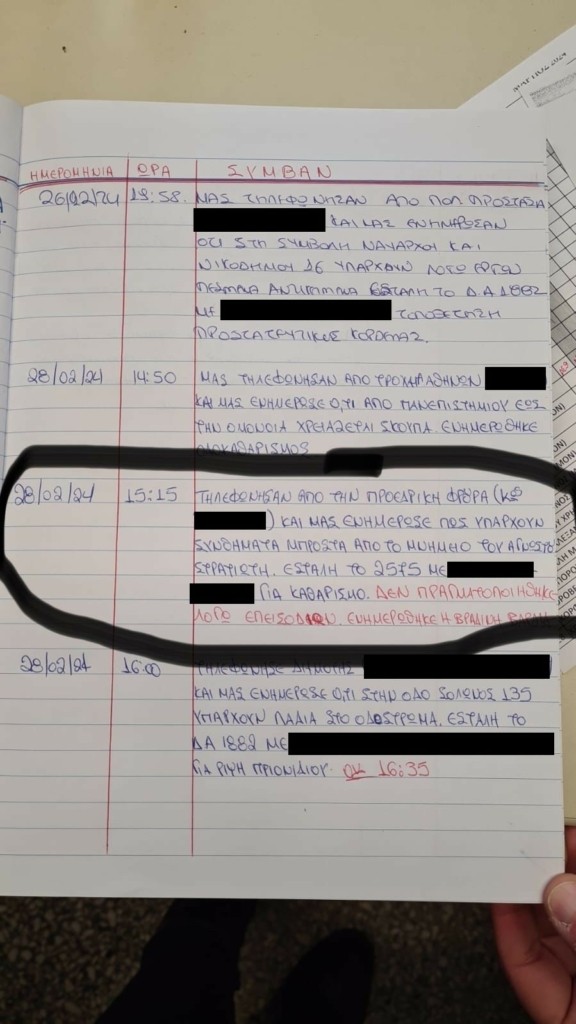 ΗΜΕΡΟΜΗΝΙΑ ΩΡΑ ΣΥΜΒΑΝ
26/02/24 19:58. ΜΑΣ ΤΗΛΕΦΩΝΗΣΑΝ ΑΠΟ ΠΟΛ ΠΡΟΣΤΑΣΙΑ
ΚΑΙ ΜΑΣ ΕΝΗΜΕΡΩΣΑΝ
ΟΤΙ ΣΤΗ ΣΥΜΒΟΛΗ ΝΑΥΑΡΧΟΥ ΚΑΙ
ΝΙΚΟΔΗΜΟΥ 16 ΥΠΑΡΧΟΥΝ ΛΟΓΩ ΕΡΓΩΝ
ΕΣΤΑΛΗ ΤΟ Δ.Α 1882
ΜΕ ΤΟΠΟΘΕΤΗΣΗ
ΠΡΟΣΤΑΤΕΥΤΙΚΗΣ ΚΟΡΔΕΛΑΣ.
28/02/24 14:50 ΜΑΣ ΤΗΛΕΦΩΝΗΣΑΝ ΑΠΟ ΤΡΟΧΑΙΑ ΑΘΗΝΩΝ
ΚΑΙ ΜΑΣ ΕΝΗΜΕΡΩΣΕ Ο,ΤΙ ΑΠΟ ΠΑΝΕΠΙΣΤΗΜΙΟΥ ΕΩΣ
ΤΗΝ ΟΜΟΝΟΙΑ ΧΡΕΙΑΖΕΤΑΙ ΣΚΟΥΠΑ. ΕΝΗΜΕΡΩΘΗΚΕ
28/02/24 15:15 ΤΗΛΕΦΩΝΗΣΑΝ ΑΠΟ ΤΗΝ ΠΡΟΕΔΡΙΚΗ ΦΡΟΥΡΑ (ΚΟΣ
) ΚΑΙ ΜΑΣ ΕΝΗΜΕΡΩΣΕ ΠΩΣ ΥΠΑΡΧΟΥΝ
ΣΥΝΘΗΜΑΤΑ ΜΠΡΟΣΤΑ ΑΠΟ ΤΟ ΜΝΗΜΕΙΟ ΤΟΥ ΑΓΝΩΣΤΟΥ
ΣΤΡΑΤΙΩΤΗ. ΕΣΤΑΛΗ ΤΟ 2575 ΜΕ
ΓΙΑ ΚΑΘΑΡΙΣΜΟ. ΔΕΝ ΠΡΑΓΜΑΤΟΠΟΙΗΘΗΚΕ
ΛΟΓΩ ΕΠΕΙΣΟΔΙΩΝ. ΕΝΗΜΕΡΩΘΗΚΕ Η ΒΡΑΔΙΝΗ ΒΑΡΔΙΑ
28/02/24 16:00 ΤΗΛΕΦΩΝΗΣΕ ΔΗΜΟΤΗΣ
ΚΑΙ ΜΑΣ ΕΝΗΜΕΡΩΣΕ Ο,ΤΙ ΣΤΗΝ ΟΔΟ ΣΟΛΩΝΟΣ 135
ΥΠΑΡΧΟΥΝ ΛΑΔΙΑ ΣΤΟ ΟΔΟΣΤΡΩΜΑ. ΕΣΤΑΛΗ ΤΟ
ΔΑ 1882 ΜΕ
ΓΙΑ ΡΙΨΗ ΠΡΙΟΝΙΔΙΟΥ. ΟΚ 16:35